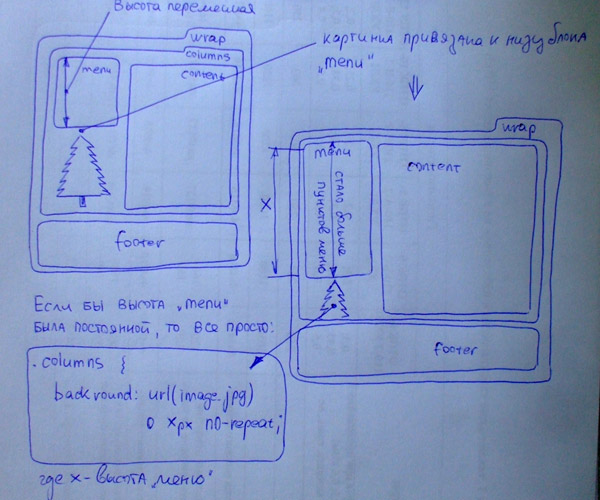 Высота переменная
картинка привязана к низу блока
„menu"
wrap
columns
menu
content
footer
wrap
menu
content
стало больше
пунктов меню
x
footer
Если бы высота „menu"
была постоянной, то все просто:
.columns {
backround: url(image.jpg)
0 xpx no-repeat;
где x - высота „меню"